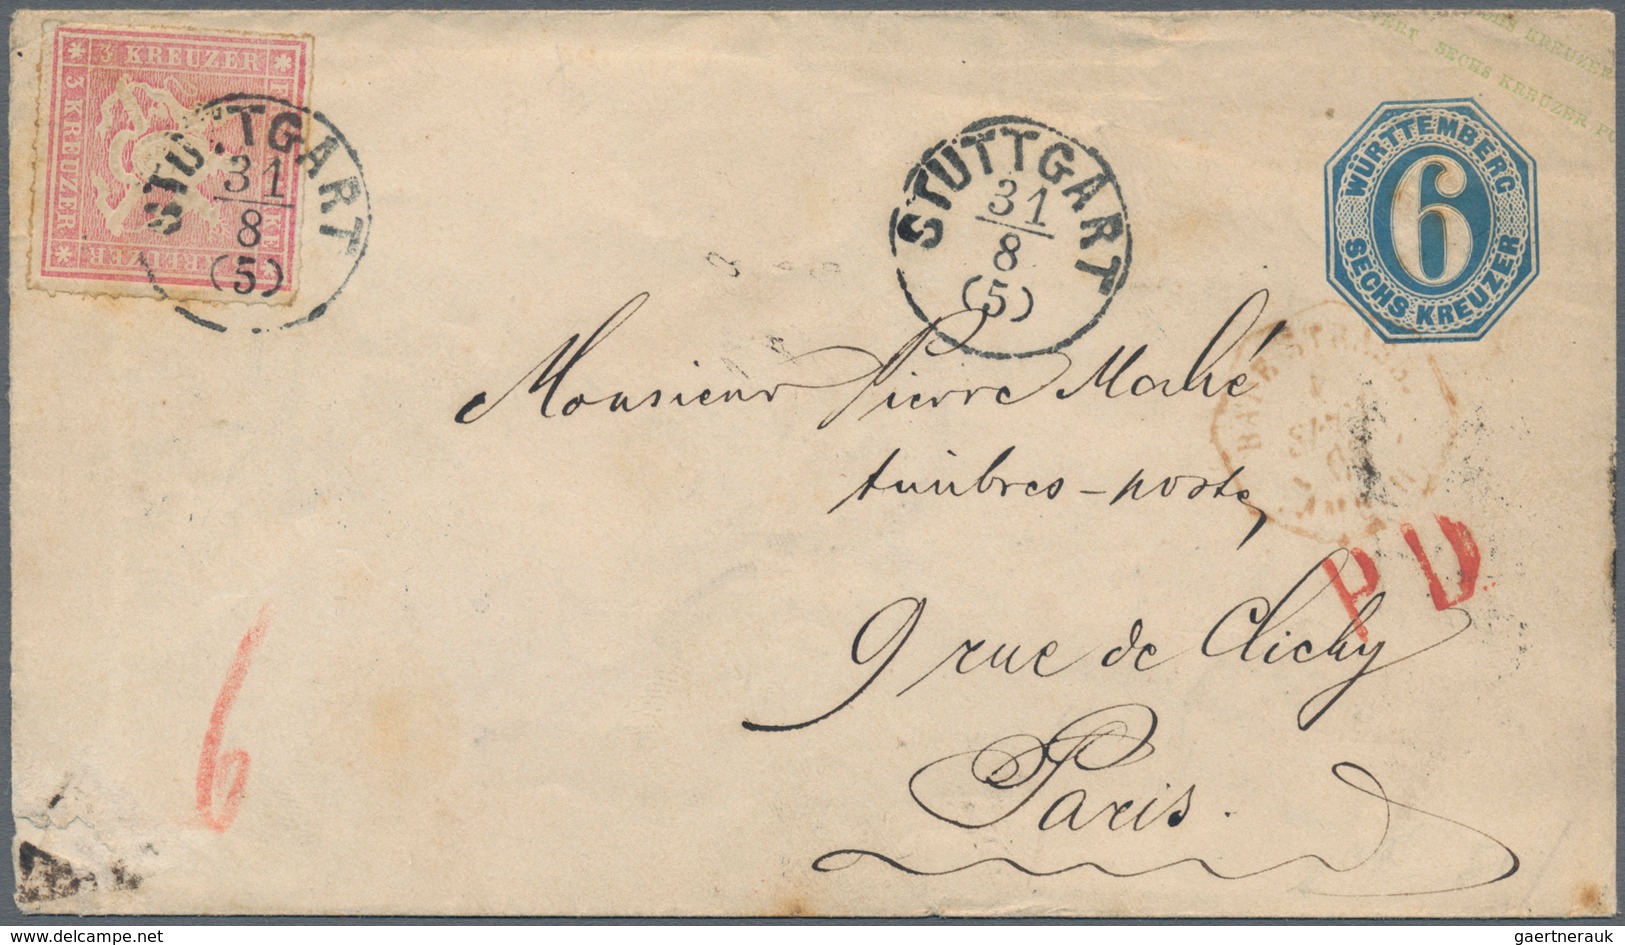 3 KREUZER
3 KREUZER
STUTTGART
31
8
(5)
STUTTGART
31
8
(5)
KREUZER
SECHS KREUZER
WÜRTTEMBERG
6
SECHS KREUZER
Monsieur Pierre Mahé
timbres-poste
P D
9 rue de Clichy
Paris.
6
delcampe.net
gaertnerauk